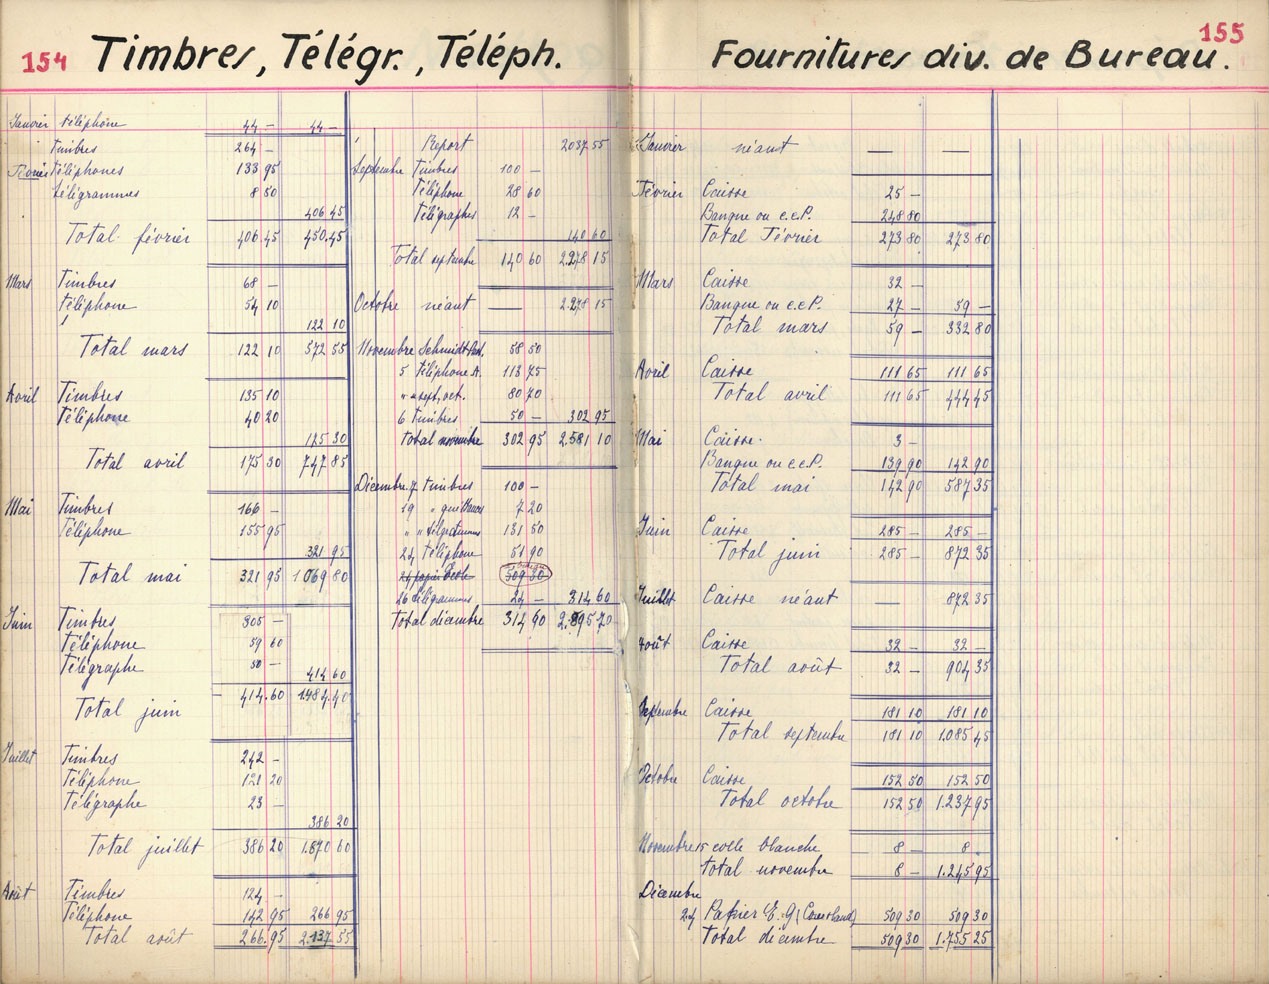 154 Timbres, Télégr., Téléph.
Janvier téléphone 44 — 44 —
Timbres 264 —
Février Téléphones 133 95
télégrammes 8 50
406 45
Total février 406.45 450.45
Mars Timbres 68 —
Téléphone 54 10
122 10
Total mars 122 10 572 55
Avril Timbres 135 10
Téléphone 40 20
175 30
Total avril 175 30 747 85
Mai Timbres 166 —
Téléphone 155 95
321 95
Total mai 321 95 1069 80
Juin Timbres 305 —
Téléphone 59 60
Télégraphe 50 —
414 60
Total juin 414.60 1.484.40
Juillet Timbres 242 —
Téléphone 121 20
Télégraphe 23 —
386 20
Total juillet 386 20 1.870 60
Août Timbres 124 —
Téléphone 142 95 266 95
Total août 266.95 2.137 55
Report 2037 55
Septembre Timbres 100 —
Téléphone 28 60
Télégraphes 12 —
140 60
Total septembre 140 60 2.278 15
Octobre néant — 2.278 15
Novembre Schmidt 58 50
5 téléphone A. 113 75
" " sept, oct. 80 70
6 timbres 50 — 302 95
total novembre 302 95 2.581 10
Décembre 7 timbres 100 —
19 " 7 20
" " télégrammes 131 50
24 téléphone 51 90
24 papier 509 30
26 télégrammes 24 — 314 60
Total décembre 314 60 2.895 70
155
Fournitures div. de Bureau.
Janvier néant — —
Février Caisse 25 —
Banque ou c.c.P. 248 80
Total Février 273 80 273 80
Mars Caisse 32 —
Banque ou c.c.P. 27 — 59 —
Total mars 59 — 332 80
Avril Caisse 111 65 111 65
Total avril 111 65 444 45
Mai Caisse. 3 —
Banque ou c.c.P. 139 90 142 90
Total mai 142 90 587 35
Juin Caisse 285 — 285 —
Total juin 285 — 872 35
Juillet Caisse néant — 872 35
Août Caisse 32 — 32 —
Total août 32 — 904 35
Septembre Caisse 181 10 181 10
Total septembre 181 10 1.085 45
Octobre Caisse 152 50 152 50
Total octobre 152 50 1.237 95
Novembre 15 colle blanche 8 — 8
total novembre 8 — 1.245 95
Décembre
24 Papier E. G. 509 30 509 30
Total décembre 509 30 1.755 25